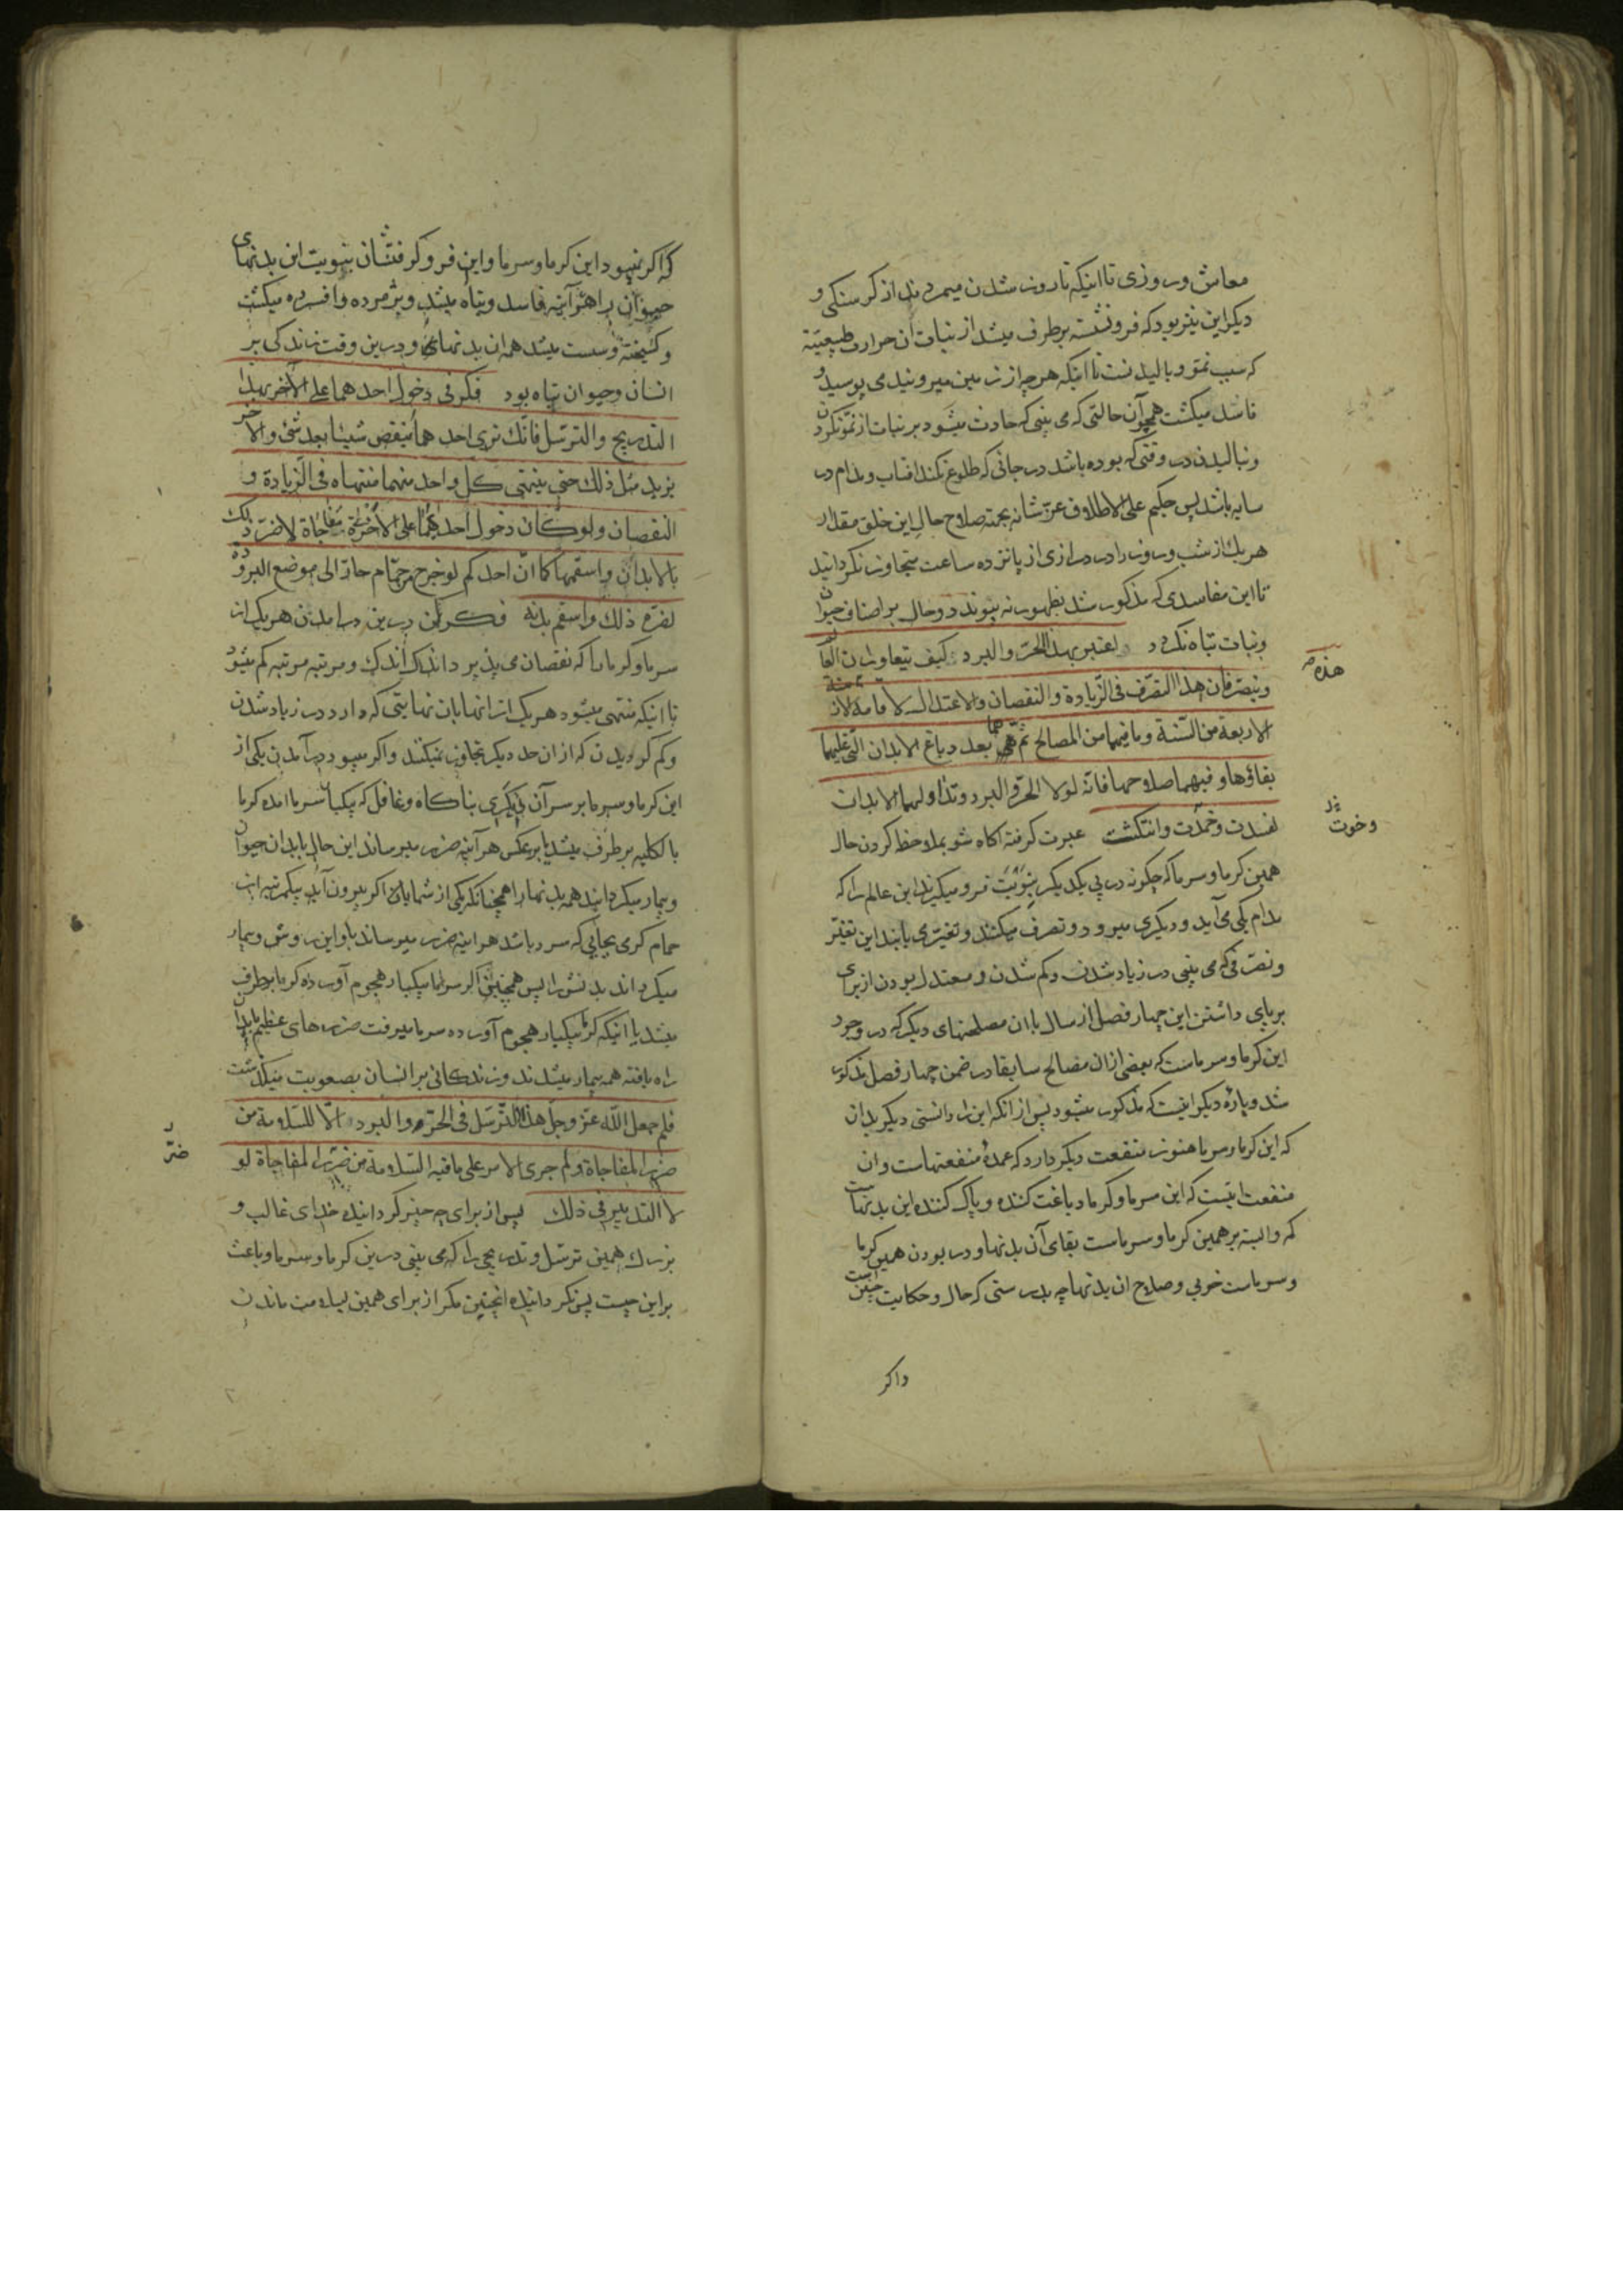 معاش و روزی تا اینکه تا روز شدن میمردند از کرسنکی و
دیکر این نیز بود که فرو نشسته برطرف میشد از نباتات آن حرارت طبیعیّة
که سبب نموّ و بالیدنست تا اینکه هر چه از زمین میروئید می پوسید و
فاسد میکشت همچو آن حالتی که می بینی که حادث میشود بر نبات از نموّ نکردن
و نبالیدن در وقتی که بوده باشد در جائی که طلوع نکند افتاب و مدام در
سایه باشد پس حکیم علی الاطلاق عزّ شانه بجهة صلاح حال این خلق مقدار
هر یک از شب و روز را در درازی از پانزده ساعت متجاوز نکردانید
تا این مفاسدی که مذکور شد بظهور نه پیوندد و حال بر اصناف حیوان
و نبات تباه نکردد اعتبر بهذا الحرّ والبرد کیف یتعاوران العالم
هذه
ویتصرفان هذا التصرّف فی الزّیادة والنقصان والاعتدال لاقامة الازمنة
الاربعة من السّنة وما فیهما من المصالح ثم هما بعد دباغ الابدان الّتی علیهما
بقاؤها وفیهما صلاحها فانّه لولا الحرّ والبرد وتداولهما الابدان
لفسدت وخمدت وانتکثت عبرت کرفته اکاه شو بملاحظه کردن حال
وخوت
همین کرما و سرما که چکونه در پی یکدیکر بنوبت فرو میکیرند این عالم را که
مدام یکی می آید و دیکری میرود و تصرف میکنند و تغیّری یابند این تغیّر
و تصرّفی که می بینی در زیاد شدن و کم شدن و معتدل بودن از برای
برپای داشتن این چهار فصل از سال با ان مصلحتهای دیکر که در وجود
این کرما و سرماست که بعضی ازان مصالح سابقا در ضمن چهار فصل مذکور
شد و پارهٔ دیکر اینست که مذکور میشود پس از انکه این را دانستی دیکر بدان
که این کرما و سرما هنوز منفعت دیکر دارد که عمدهٔ منفعتهاست و ان
منفعت اینست که این سرما و کرما دباغت کننده و پاک کننده این بدنهاست
که وابسته بر همین کرما و سرماست بقای آن بدنها و در بودن همین کرما
و سرماست خوبی و صلاح ان بدنها چه بدرستی که حال و حکایت چنین است
واکر
که اکر نمیبود این کرما و سرما و این فرو کرفتنشان بنوبت این بدنهای
حیوان را هر آینه فاسد و تباه میشد و پژمرده و افسرده میکشت
و کسیخته و سست میشد همه ان بدنها و درین وقت زندکی بر
انسان و حیوان تباه بود فکر فی دخول احدهما علی الآخر بهذا
التدریج والترسّل فانّک تری احدهما ینقص شیئا بعد شئ والآخر
یزید مثل ذلک حتی ینتهی کل واحد منهما منتهاه فی الزّیادة و
النقصان ولو کان دخول احدهما علی الاخری مفاجاة لاضرّ ذلک
بالابدان واسقمها کما انّ احدکم لو خرج من حمّام حارّ الی موضع البرودة
لضرّه ذلک واسقم بدنه فکر کن درین در امدن هر یک از
سرما و کرما را که نقصان می پذیرد اندک اندک و مرتبه مرتبه کم میشود
تا اینکه منتهی میشود هر یک از انها بان نهایتی که دارد در زیاد شدن
و کم کردیدن که از ان حد دیکر تجاوز نمیکنند و اکر میبود در آمدن یکی از
این کرما و سرما بر سر آن دیکری بناکاه و غافل که یکبار سرما امده کرما
بالکلیه برطرف میشد یا بر عکس هر آینه ضرر میرساند این حال بابدان حیوان
و بیمار میکردانید همه بدنها را همچنانکه یکی از شمایان اکر بیرون آید بیکمرتبه از
حمام کرمی بجایی که سرد باشد هر اینه ضرر میرساند باو این روش و بیمار
میکرداند بدنش را پس همچنین اکر سرما یکبار هجوم آورده کرما برطرف
میشد یا اینکه کرما یکبار هجوم آورده سرما میرفت ضررهای عظیم بابدان
راه یافته همه بیمار میشدند و زندکانی بر انسان بصعوبت میکذشت
فلم جعل اللّه عزّ وجلّ هذا الترسّل فی الحرّ والبرد الّا للسّلامة من
ضرر المفاجاة ولم جری الامر علی ما فیه السّلامة من ضرر المفاجاة لو
ضرّ
لا التدبیر فی ذلک پس از برای چه چیز کردانیده خدای غالب و
بزرک همین ترسّل و تدریجی را که می بینی درین کرما و سرما و باعث
براین چیست پس نکردانیده انچنین مکر از برای همین سلامت ماندن